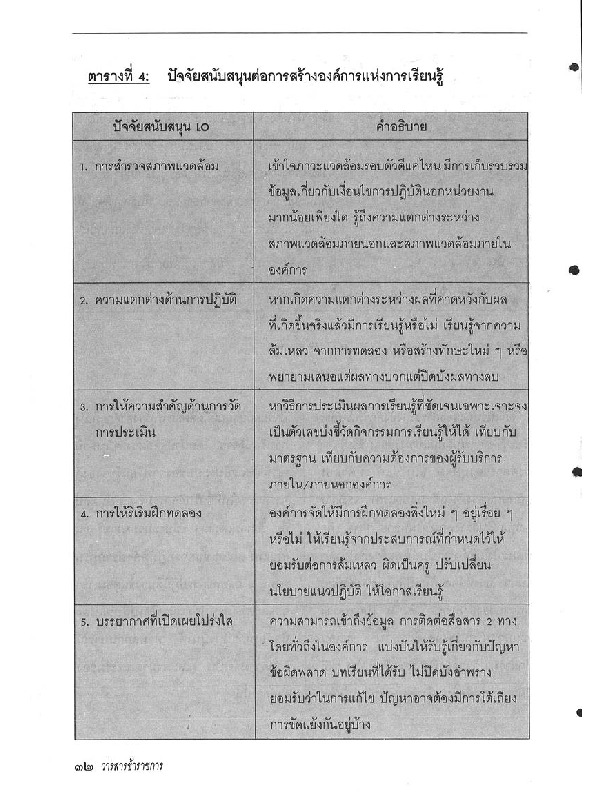 ตารางที่ 4: ปัจจัยสนับสนุนต่อการสร้างองค์การแห่งการเรียนรู้
ปัจจัยสนับสนุน LO
คำอธิบาย
1. การสำรวจสภาพแวดล้อม
เข้าใจภาวะแวดล้อมรอบตัวดีแค่ไหน มีการเก็บรวบรวม
ข้อมูลเกี่ยวกับเงื่อนไขการปฏิบัตินอกหน่วยงาน
มากน้อยเพียงใด รู้ถึงความแตกต่างระหว่าง
สภาพแวดล้อมภายนอกและสภาพแวดล้อมภายใน
องค์การ
2. ความแตกต่างด้านการปฏิบัติ
หากเกิดความแตกต่างระหว่างผลที่คาดหวังกับผล
ที่เกิดขึ้นจริงแล้วมีการเรียนรู้หรือไม่ เรียนรู้จากความ
ล้มเหลว จากการทดลอง หรือสร้างทักษะใหม่ ๆ หรือ
พยายามเสนอแต่ผลทางบวกแต่ปิดบังผลทางลบ
3. การให้ความสำคัญด้านการวัด
การประเมิน
หาวิธีการประเมินผลการเรียนรู้ที่ชัดเจนเฉพาะเจาะจง
เป็นตัวเลขบ่งชี้วัดกิจกรรมการเรียนรู้ให้ได้ เทียบกับ
มาตรฐาน เทียบกับความต้องการของผู้รับบริการ
ภายใน/ภายนอกองค์การ
4. การให้ริเริ่มฝึกทดลอง
องค์การจัดให้มีการฝึกทดลองสิ่งใหม่ ๆ อยู่เรื่อย ๆ
หรือไม่ ให้เรียนรู้จากประสบการณ์ที่กำหนดไว้ให้
ยอมรับต่อการล้มเหลว ผิดเป็นครู ปรับเปลี่ยน
นโยบายแนวปฏิบัติ ให้โอกาสเรียนรู้
5. บรรยากาศที่เปิดเผยโปร่งใส
ความสามารถเข้าถึงข้อมูล การติดต่อสื่อสาร 2 ทาง
โดยทั่วถึงในองค์การ แบ่งปันให้รับรู้เกี่ยวกับปัญหา
ข้อผิดพลาด บทเรียนที่ได้รับ ไม่ปิดบังอำพราง
ยอมรับว่าในการแก้ไข ปัญหาอาจต้องมีการโต้เถียง
การขัดแย้งกันอยู่บ้าง
๓๒ วารสารข้าราชการ